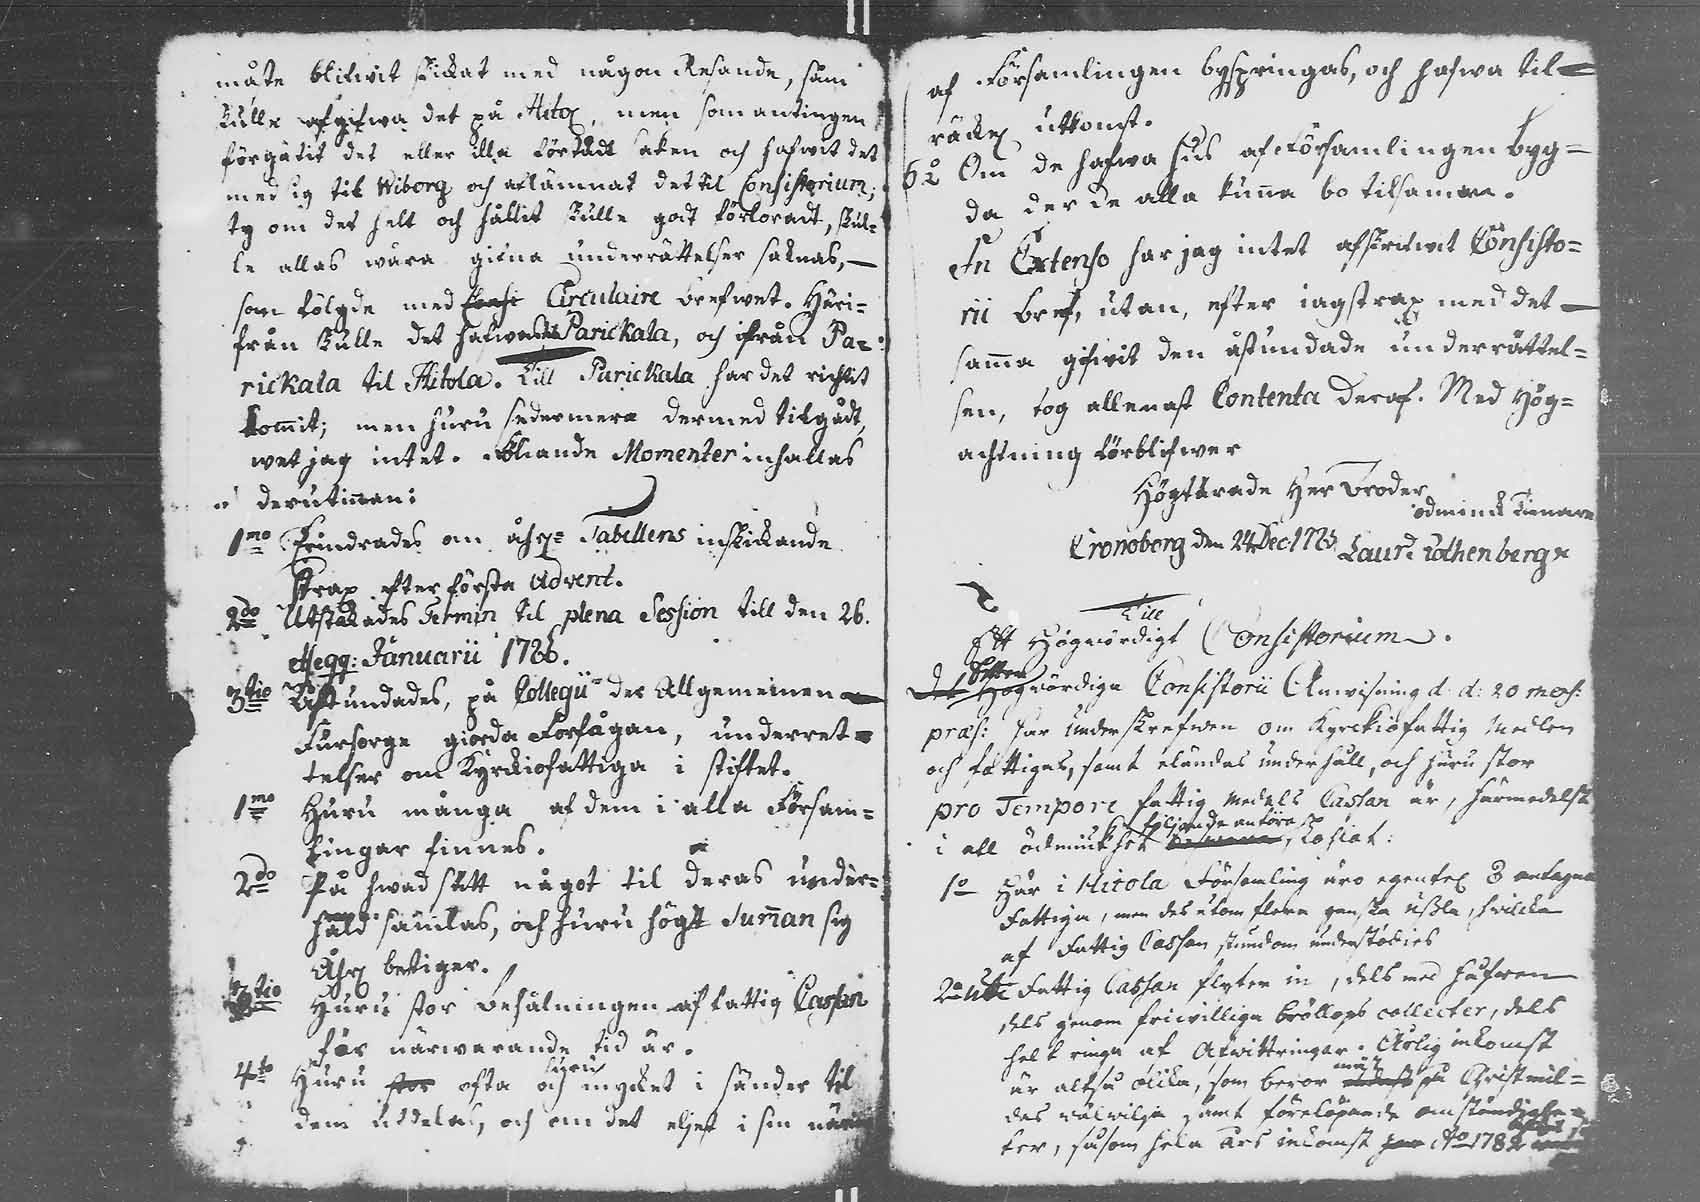 måste blifwit skickat med någon Resande, som
skulle afgifwa det på Hitol, men som antingen
förgätit det eller illa förstådt saken och hafwit det
med sig til Wiborg och aflämnat det til Consistorium;
ty om det helt och hållit skulle gådt förloradt, skul-
le allas wåra gifna underrättelser saknas,
som fölgde med Circulaire brefwet. Häri-
från skulle det hafwa til Parickala, och ifrån Pa-
rickala til Hitola. Till Parickala har det richtit
kommit; men huru sedermera dermed tilgådt,
wet jag intet. Följande Momenter inhållas
derutinnan:
1mo Erindrades om åhrl. Tabellens inskickande
strax efter första Advent.
2do Utstakades Termin til plena Session till den 26.
et seqq: Januarii 1786.
3tio Åstundades, på Collegii der Allgemeinen
Fürsorge giorda Förfågan, underret-
telser om Kyrckiofattiga i stiftet.
1mo Huru många af dem i alla Försam-
lingar finnes.
2do På hwad sätt något til deras under-
håld samlas, och huru högt Summan sig
Åhrl betiger.
3tio Huru stor behålningen af fattig Cassan
för närwarande tid är.
4to Huru stor ofta och huru mycket i sänder til
dem utdelas, och om det eljest i sin
af Församlingen byspringas, och hafwa til-
räckel utkomst.
5o Om de hafwa hus af Församlingen byg-
da der de alla kunna bo tilsamman.
In Extenso har jag intet afskrifwit Consisto-
rii bref, utan, efter iag strax med det-
samma gifwit den åstundade underrättel-
sen, tog allenast Contenta deraf. Med Hög-
achtning förblifwer
Högtärade Her Broder
ödmiuk Tienare
Cronoborg den 24 Dec 1785 Laur: Rothenberg
Till
Ett Högwördigt Consistorium.
Det Högwördiga Consistorii Anwisning d: d: 20 mens:
præs: har Underskrefwen om Kyrckiofattig Medlen
och fattigas, samt eländas underhåll, och huru stor
pro Tempore fattig Medels Cassan är, härmedelst
i all ödmiukhet följande anföra
1o Här i Hitola Församling äro egentel 8 antagna
Fattiga, men des utom flere ganska usßla, hwilcka
af Fattig Cassan stundom understödies
2o Uti Fattig Cassan flyter in, dels med håfwen
dels genom friwilliga bröllops collecter, dels
helt ringa af Afwittringar. Årlig inkomst
är altså olika, som beror mäst på Christmil-
das wälwilja samt föreløpande omständighe-
ter, såsom hela års inkomst Ao 1782